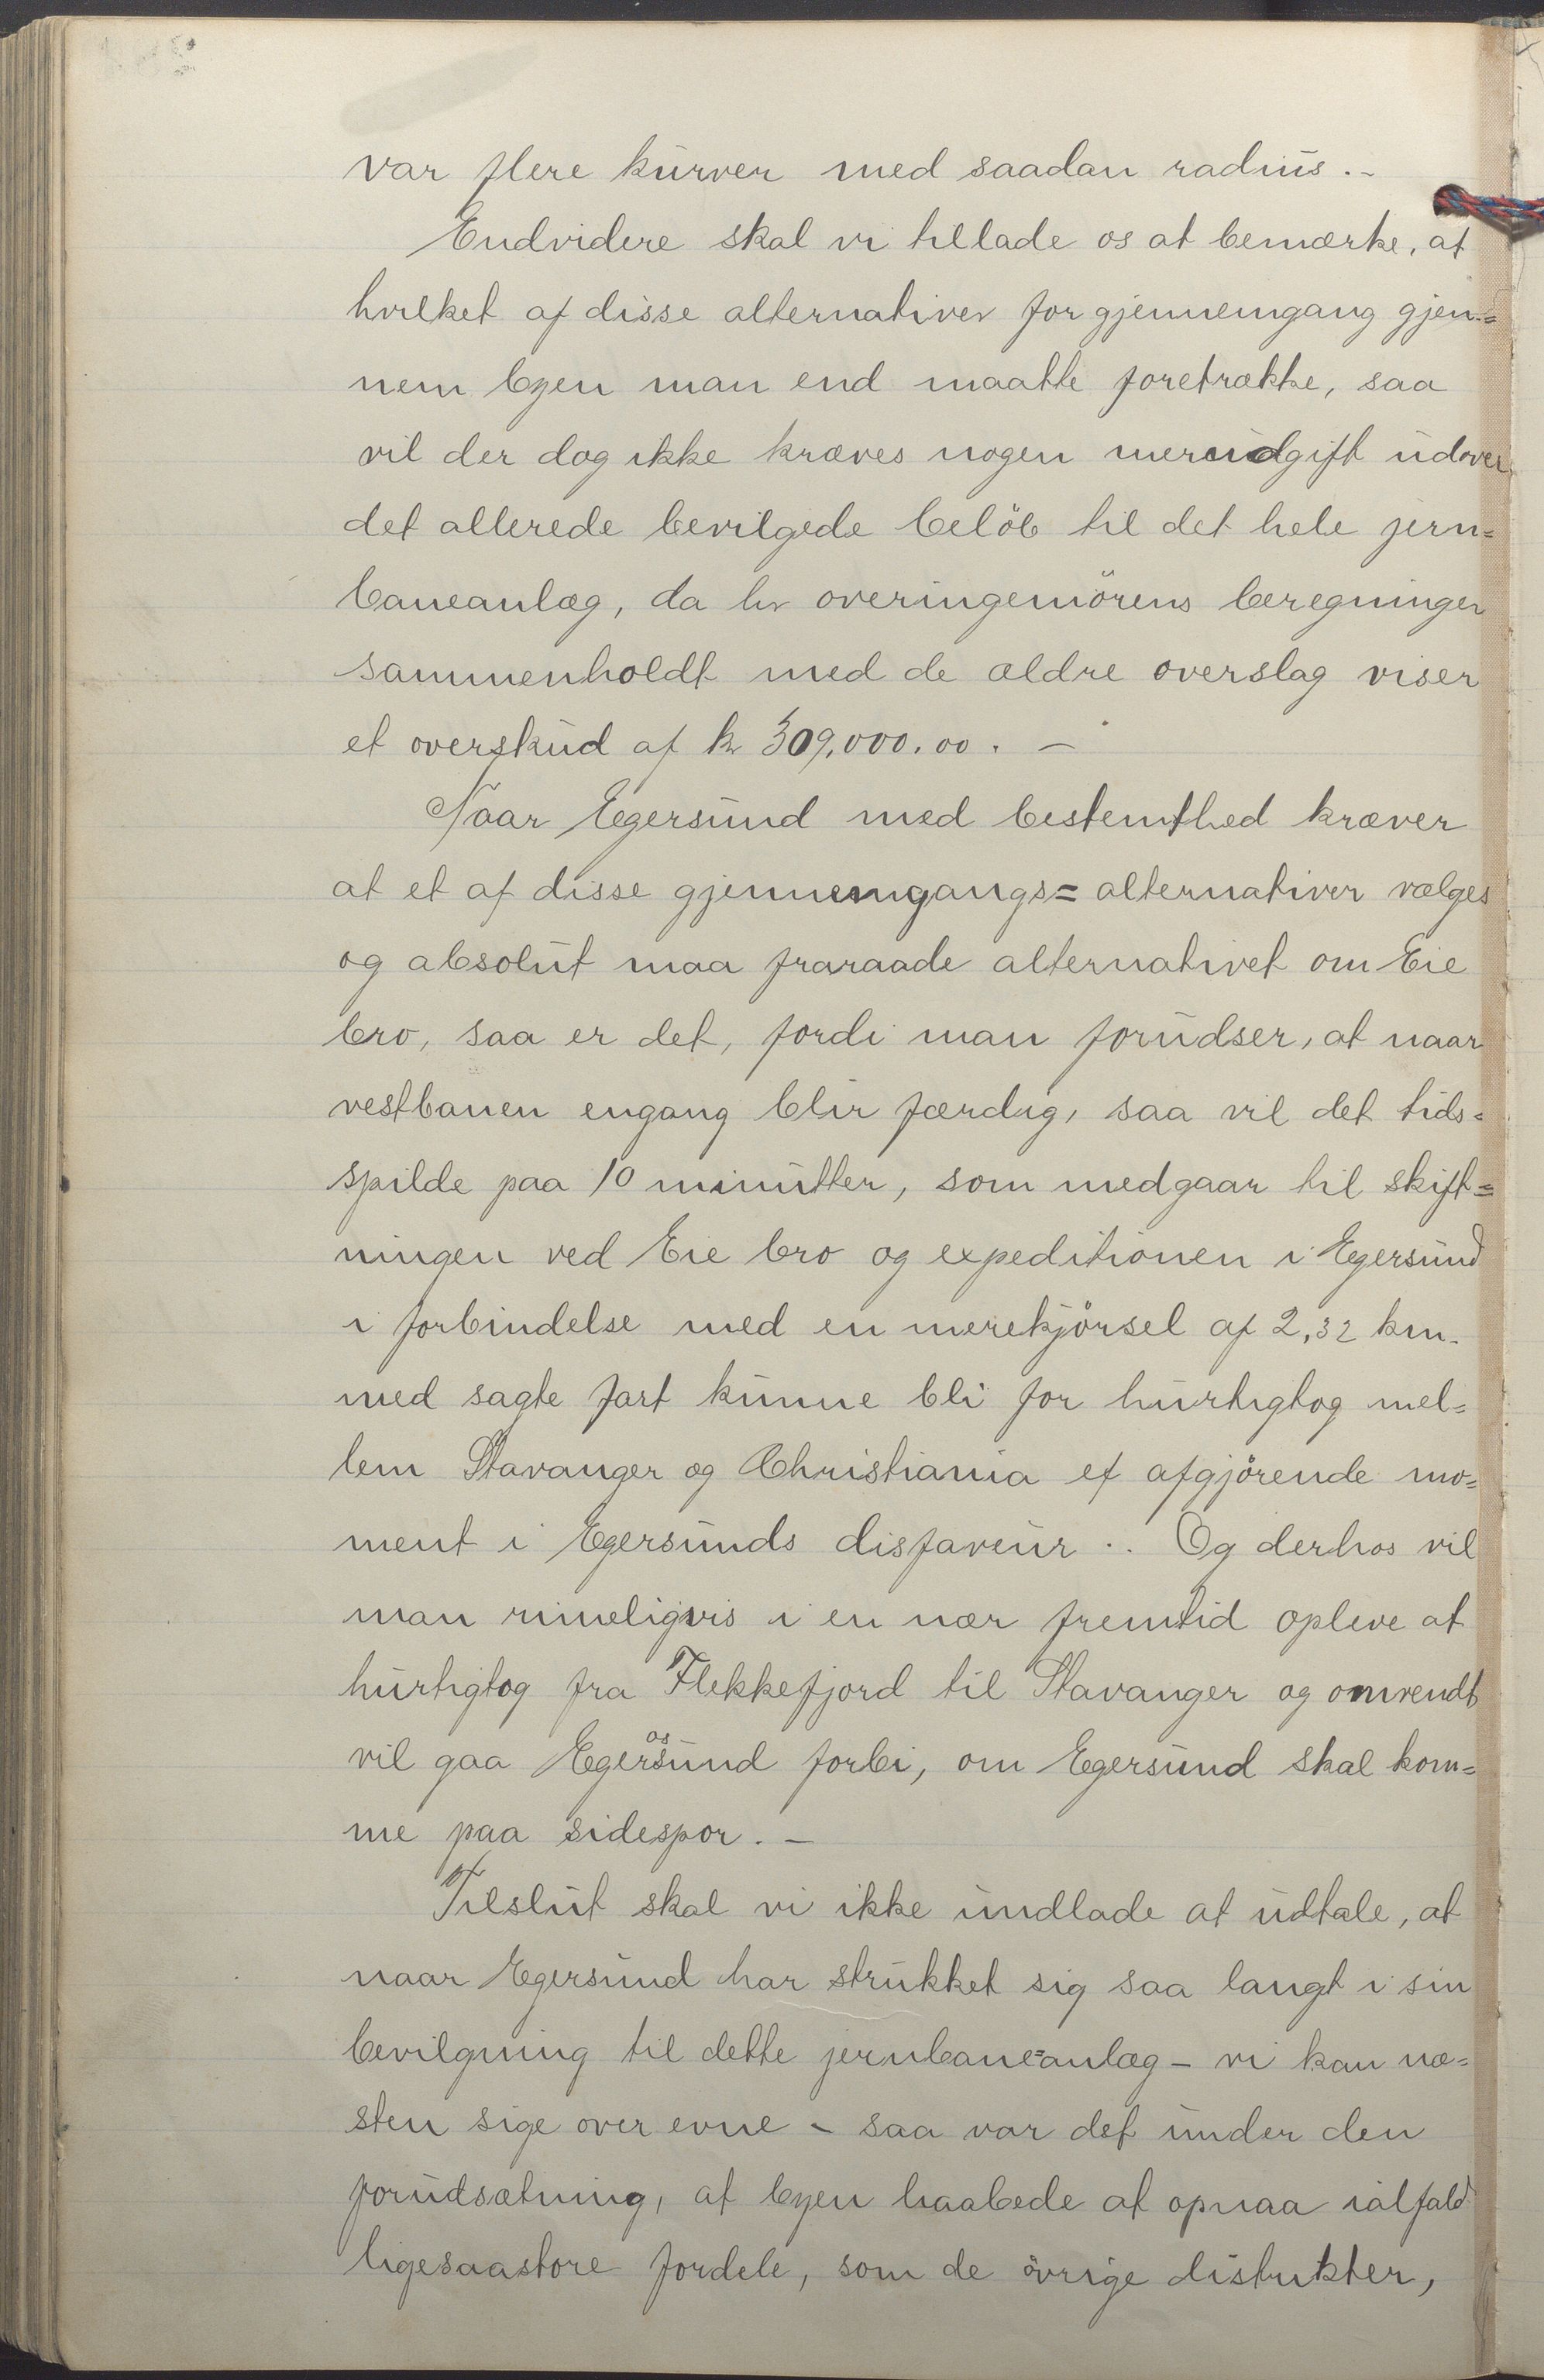 var flere kurver med saadan radius.-
Endvidere skal vi tillade os at bemærke, at
hvilket af disse alternativer for gjennemgang gjen=
nem byen man end maatte foretrække, saa
vil der dog ikke kræves nogen merudgift udover
det allerede bevilgede beløb til det hele jern=
baneanlæg, da hr overingeniörens beregninger
sammenholdt med de ældre overslag viser
et overskud af kr 309,000.00. -
Naar Egersund med bestemthed kræver
at et af disse gjennemgangs= alternativer vælges
og absolut maa fraraade alternativet om Eie
bro, saa er det, fordi man forudser, at naar
vestbanen engang blir færdig, saa vil det tids=
spilde paa 10 minutter, som medgaar til skift=
ningen ved Eie bro og expeditionen i Egersund
i forbindelse med en merekjörsel af 2,32 km.
med sagte fart kunne bli for hurtigtog mel=
lem Stavanger og Christiania et afgjörende mo=
ment i Egersunds disfaveur.. Og derhos vil
man rimeligvis i en nær fremtid opleve at
hurtigtog fra Flekkefjord til Stavanger og omvendt
vil gaa Egersund os forbi, om Egersund skal kom=
me paa sidespor. -
Tilslut skal vi ikke undlade at udtale, at
naar Egersund har strukket sig saa langt i sin
bevilgning til dette jernbane=anlæg - vi kan næ=
sten sige over evne - saa var det under den
forudsætning, at byen haabede at opnaa ialfald
ligesaastore fordele, som de övrige distrikter,